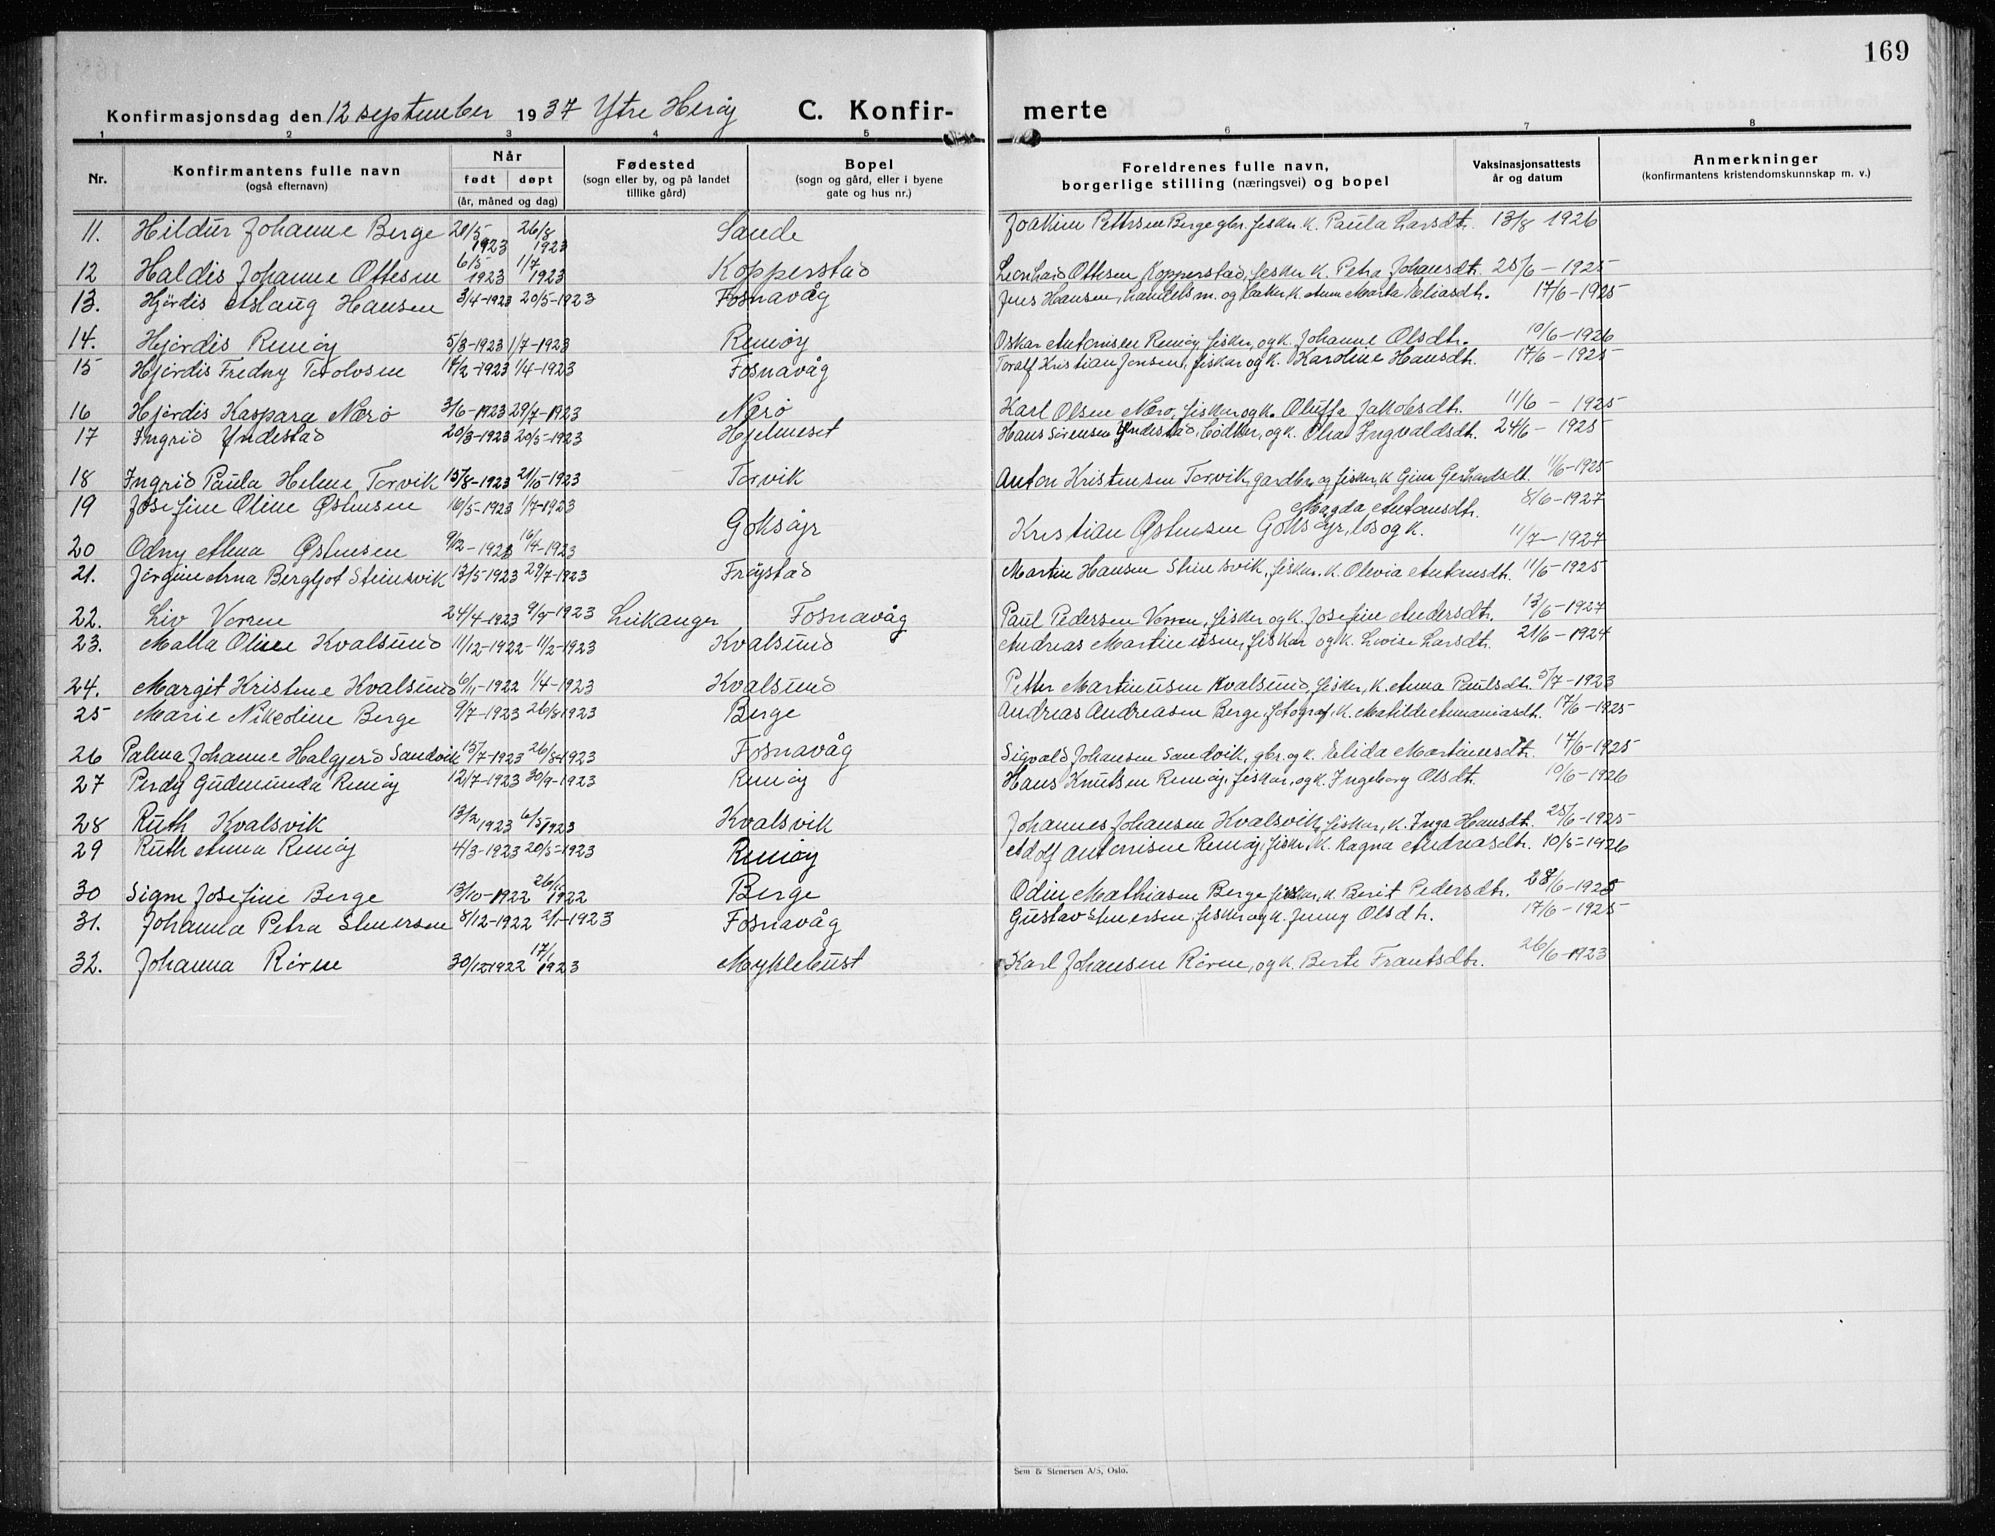 169
Konfirmasjonsdag den 12 september 1937 Ytre Herøy C. Konfir- merte
1 2 3 4 5 6 7 8
Nr. Konfirmantens fulle navn (også efternavn) Når født døpt (år, måned og dag) Fødested (sogn eller by, og på landet tillike gård) Bopel (sogn og gård, eller i byene gate og hus nr.) Foreldrenes fulle navn, borgerlige stilling (næringsvei) og bopel Vaksinasjonsattests år og datum Anmerkninger (konfirmantens kristendomskunnskap m. v.)
11. Hildur Johanne Berge 20/5 1923 26/8 1923 Sande Joakim Pettersen Berge gbr. fisker. k. Paula Larsdt. 13/8 1926
12 Haldis Johanne Ottesen 6/5 1923 1/7 1923 Kopperstad Leonhard Ottesen Kopperstad, fisker k. Petra Johansdt. 25/6 - 1925
13. Hjørdis Aslaug Hansen 3/4-1923 20/5-1923 Fosnavåg Jens Hansen, handelsm. og baker k. Anne Marta Eliasdt. 17/6-1925
14. Hjørdis Remøy 5/3-1923 1/7-1923 Remøy Oskar Antonisen Remøy, fisker, og k. Johanne Olsdt. 10/6-1926
15 Hjørdis Fredny Torolvsen 17/2-1923 1/4-1923 Fosnavåg Toralf Kristian Jensen, fisker og k. Karoline Hansdt. 17/6-1925
16 Hjørdis Kaspara Nærø 3/6-1923 29/7-1923 Nærø Karl Olsen Nærø, fisker, og k. Oluffa Jakobsdt. 11/6 - 1925
17 Ingrid Yndestad 20/3-1923 20/5-1923 Hjelmeset Hans Sørensen Yndestad, bødker, og k. Olea Ingvaldsdt. 24/6 - 1925
18 Ingrid Paula Helene Torvik 15/8-1923 21/10-1923 Torvik Anton Kristensen Torvik, gardbr. og fisker, k Gina Gerhardsdt. 11/6-1925
19 Josefine Oline Østensen 16/5-1923 1/7-1923 Magda Antonsdt. 8/6-1927
Goksøyr Kristian Østensen Goksøyr, los og k.
20 Odny Alma Østensen 9/2-1923 16/4-1923 11/7-1927
21. Jørgine Arna Bergljot Steinsvik 13/5-1923 29/7-1923 Frøystad Martin Hansen Steinsvik, fisker. k. Olevia Antonsdt. 11/6-1925
22. Liv Vorren 24/4-1923 9/9-1923 Leikanger Fosnavåg Paul Pedersen Vorren, fisker og k. Josefine Andersdt. 13/6-1927
23. Malla Oline Kvalsund 11/12-1922 - 11/2-1923 Kvalsund Andreas Martinussen, fisker og k. Lovise Larsdt. 21/6-1924
24. Margit Kristine Kvalsund 6/11-1922 1/4-1923 Kvalsund Petter Martinusen Kvalsund, fisker, k. Anna Paulsdt. 5/7-1923
25 Marie Nikoline Berge 9/7-1923 26/8 1923 Berge Andreas Andreasen Berge, fotograf, k. Matilde Ananiasdt. 17/6-1925
26 Palma Johanne Halgjerd Sandvik 15/7-1923 26/8-1923 Fosnavåg Sigvald Johansen Sandvik, gbr. og k. Elida Martinusdt. 17/6-1925
27 Perdy Gudmunda Remøy 12/7-1923 30/9-1923 Remøy Hans Knutsen Remøy, fisker, og k. Ingeborg Olsdt. 10/6-1926
28 Ruth Kvalsvik 13/2 1923 6/5 1923 Kvalsvik Johannes Johansen Kvalsvik, fisker, k. Inga Hansdt. 25/6-1925
29 Ruth Anna Remøy 4/3-1923 20/5-1923 Remøy Adolf Antonisen Remøy, fisker, k. Ragna Andreasdt. 10/5-1926
30 Signe Josefine Berge 13/10-1922 26/11 1922 Berge Odin Mathiasen Berge fisker, k. Berit Pedersdtr. 28/6-1925
31. Johanna Petra Stenersen 8/12-1922 2/1-1923 Fosnavåg Gustav Stenersen, fisker og k. Jenny Olsdtr. 17/6-1925
32. Johanna Rørne 30/12 1922 17/1 1923 Myklebust Karl Johansen Rørne, og k. Berte Frantsdtr. 26/6-1923
Sem & Stenersen A/S, Oslo.